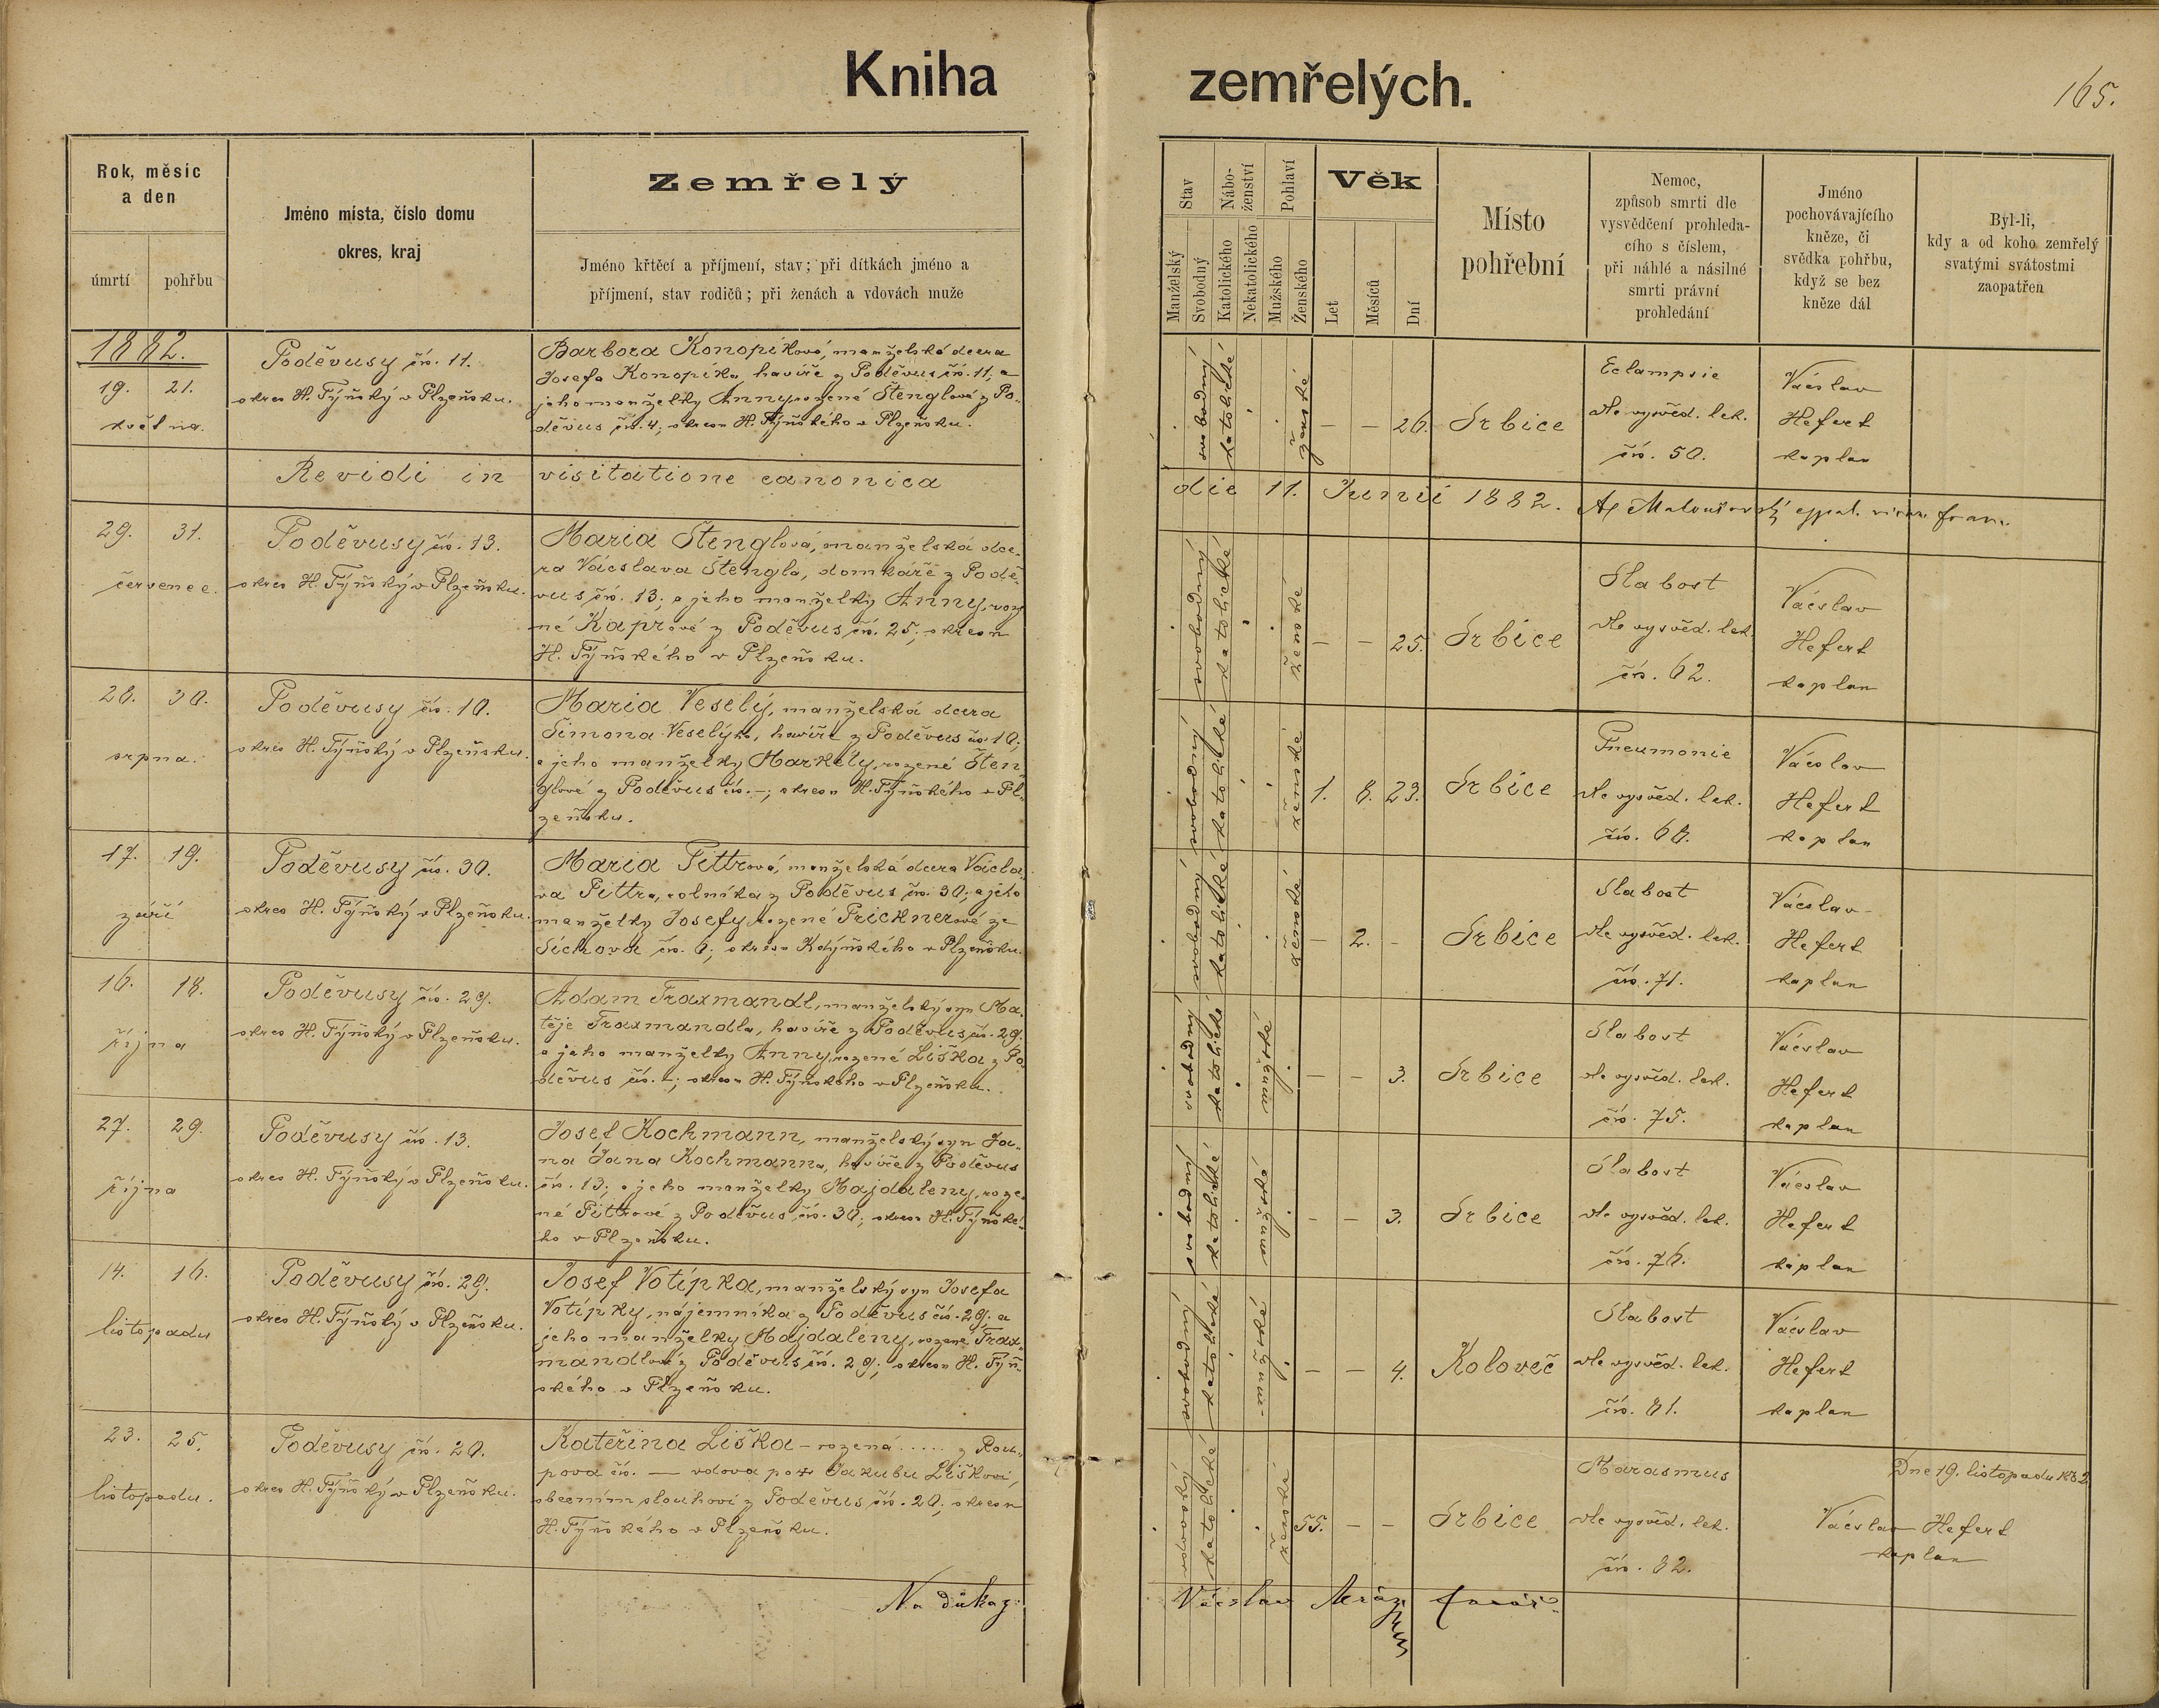 Kniha zemřelých.
165.
Rok, měsíc
a den
úmrtí pohřbu
Jméno místa, číslo domu
okres, kraj
Zemřelý
Jméno křtěcí a příjmení, stav; při dítkách jméno a
příjmení, stav rodičů; při ženách a vdovách muže
Stav
Manželský
Svobodný
Nábo-
ženství
Katolického
Nekatolického
Pohlaví
Mužského
Ženského
Věk
Let
Měsíců
Dní
Místo
pohřební
Nemoc,
způsob smrti dle
vysvědčení prohleda-
cího s číslem,
při náhlé a násilné
smrti právní
prohledání
Jméno
pochovávajícího
kněze, či
svědka pohřbu,
když se bez
kněze dál
Byl-li,
kdy a od koho zemřelý
svatými svátostmi
zaopatřen
1882.
19. 21.
května.
Poděvusy čís. 11.
okres H. Týňský v Plzeňsku.
Barbora Konopíková, manželská dcera
Josefa Konopíka, havíře z Poděvus čís. 11, a
jeho manželky Anny, rozené Štenglové z Po-
děvus čís. 4; okresu H. Týňského v Plzeňsku.
svobodný
katolické
ženské
– – 26.
Srbice
Eclampsie
dle vysvěd. lek.
čís. 50.
Václav
Hefert
kaplan
Revidi in visitatione canonica die 11. Junii 1882.
29. 31.
červenec.
Poděvusy čís. 13.
okres H. Týňský v Plzeňsku.
Maria Štenglová, manželská dce-
ra Václava Štengla, domkáře z Podě-
vus čís. 13; a jeho manželky Anny, roze
né Kaprové z Poděvus čís. 25; okresu
H. Týňského v Plzeňsku.
svobodný
katolické
ženské
– – 25.
Srbice
Slabost
dle vysvěd. lek.
čís. 62.
Václav
Hefert
kaplan
28. 30.
srpna.
Poděvusy čís. 10.
okres H. Týňský v Plzeňsku.
Maria Veselý, manželská dcera
Šimona Veselýho, havíře z Poděvus čís. 10;
a jeho manželky Markéty, rozené Šten
glové z Poděvus čís. –; okresu H. Týňského v Pl-
zeňsku.
svobodný
katolické
ženské
1. 8. 23.
Srbice
Pneumonie
dle vysvěd. lek.
čís. 68.
Václav
Hefert
kaplan
17. 19.
září
Poděvusy čís. 30.
okres H. Týňský v Plzeňsku.
Maria Pittrová, manželská dcera Václa-
va Pittra, rolníka z Poděvus čís. 30; a jeho
manželky Josefy, rozené Pricknerové ze
Sichova čís. 6; okresu Kdýňského v Plzeňsku.
svobodný
katolické
ženské
– 2. –
Srbice
Slabost
dle vysvěd. lek.
čís. 71.
Václav
Hefert
kaplan
16. 18.
října
Poděvusy čís. 29.
okres H. Týňský v Plzeňsku.
Adam Traxmandl, manželský syn Ma-
těje Traxmandla, havíře z Poděvus čís. 29.
a jeho manželky Anny, rozené Liška z Po
děvus čís. –; okresu H. Týňského v Plzeňsku.
svobodný
katolické
mužské
– – 3.
Srbice
Slabost
dle vysvěd. lek.
čís. 75.
Václav
Hefert
kaplan
27. 29.
října
Poděvusy čís. 13.
okres H. Týňský v Plzeňsku.
Josef Kochmann, manželský syn Ja-
na Jana Kochmanna, havíře z Poděvus
čís. 13; a jeho manželky Majdaleny, roze-
né Pittrové z Poděvus, čís. 30; okresu H. Týňské-
ho v Plzeňsku.
svobodný
katolické
mužské
– – 3.
Srbice
Slabost
dle vysvěd. lek.
čís. 76.
Václav
Hefert
kaplan
14. 16.
listopadu
Poděvusy čís. 29.
okres H. Týňský v Plzeňsku.
Josef Votípka, manželský syn Josefa
Votípky, nájemníka z Poděvus čís. 29. a
jeho manželky Majdaleny, rozené Trax-
mandlové z Poděvus čís. 29; okresu H. Týň-
ského v Plzeňsku.
svobodný
katolické
mužské
– – 4.
Koloveč
Slabost
dle vysvěd. lek.
čís. 81.
Václav
Hefert
kaplan
23. 25.
listopadu.
Poděvusy čís. 20.
okres H. Týňský v Plzeňsku.
Kateřina Liška – rozená ..... z Rou-
pova čís. — vdova po Jakubu Liškovi,
obecním slouhovi z Poděvus čís. 20; okresu
H. Týňského v Plzeňsku.
katolické
ženské
55. – –
Srbice
Marasmus
dle vysvěd. lek.
čís. 82.
Dne 19. listopadu 1882
Václav Hefert
kaplan
Na důkaz:
Václav Mráz
farář.